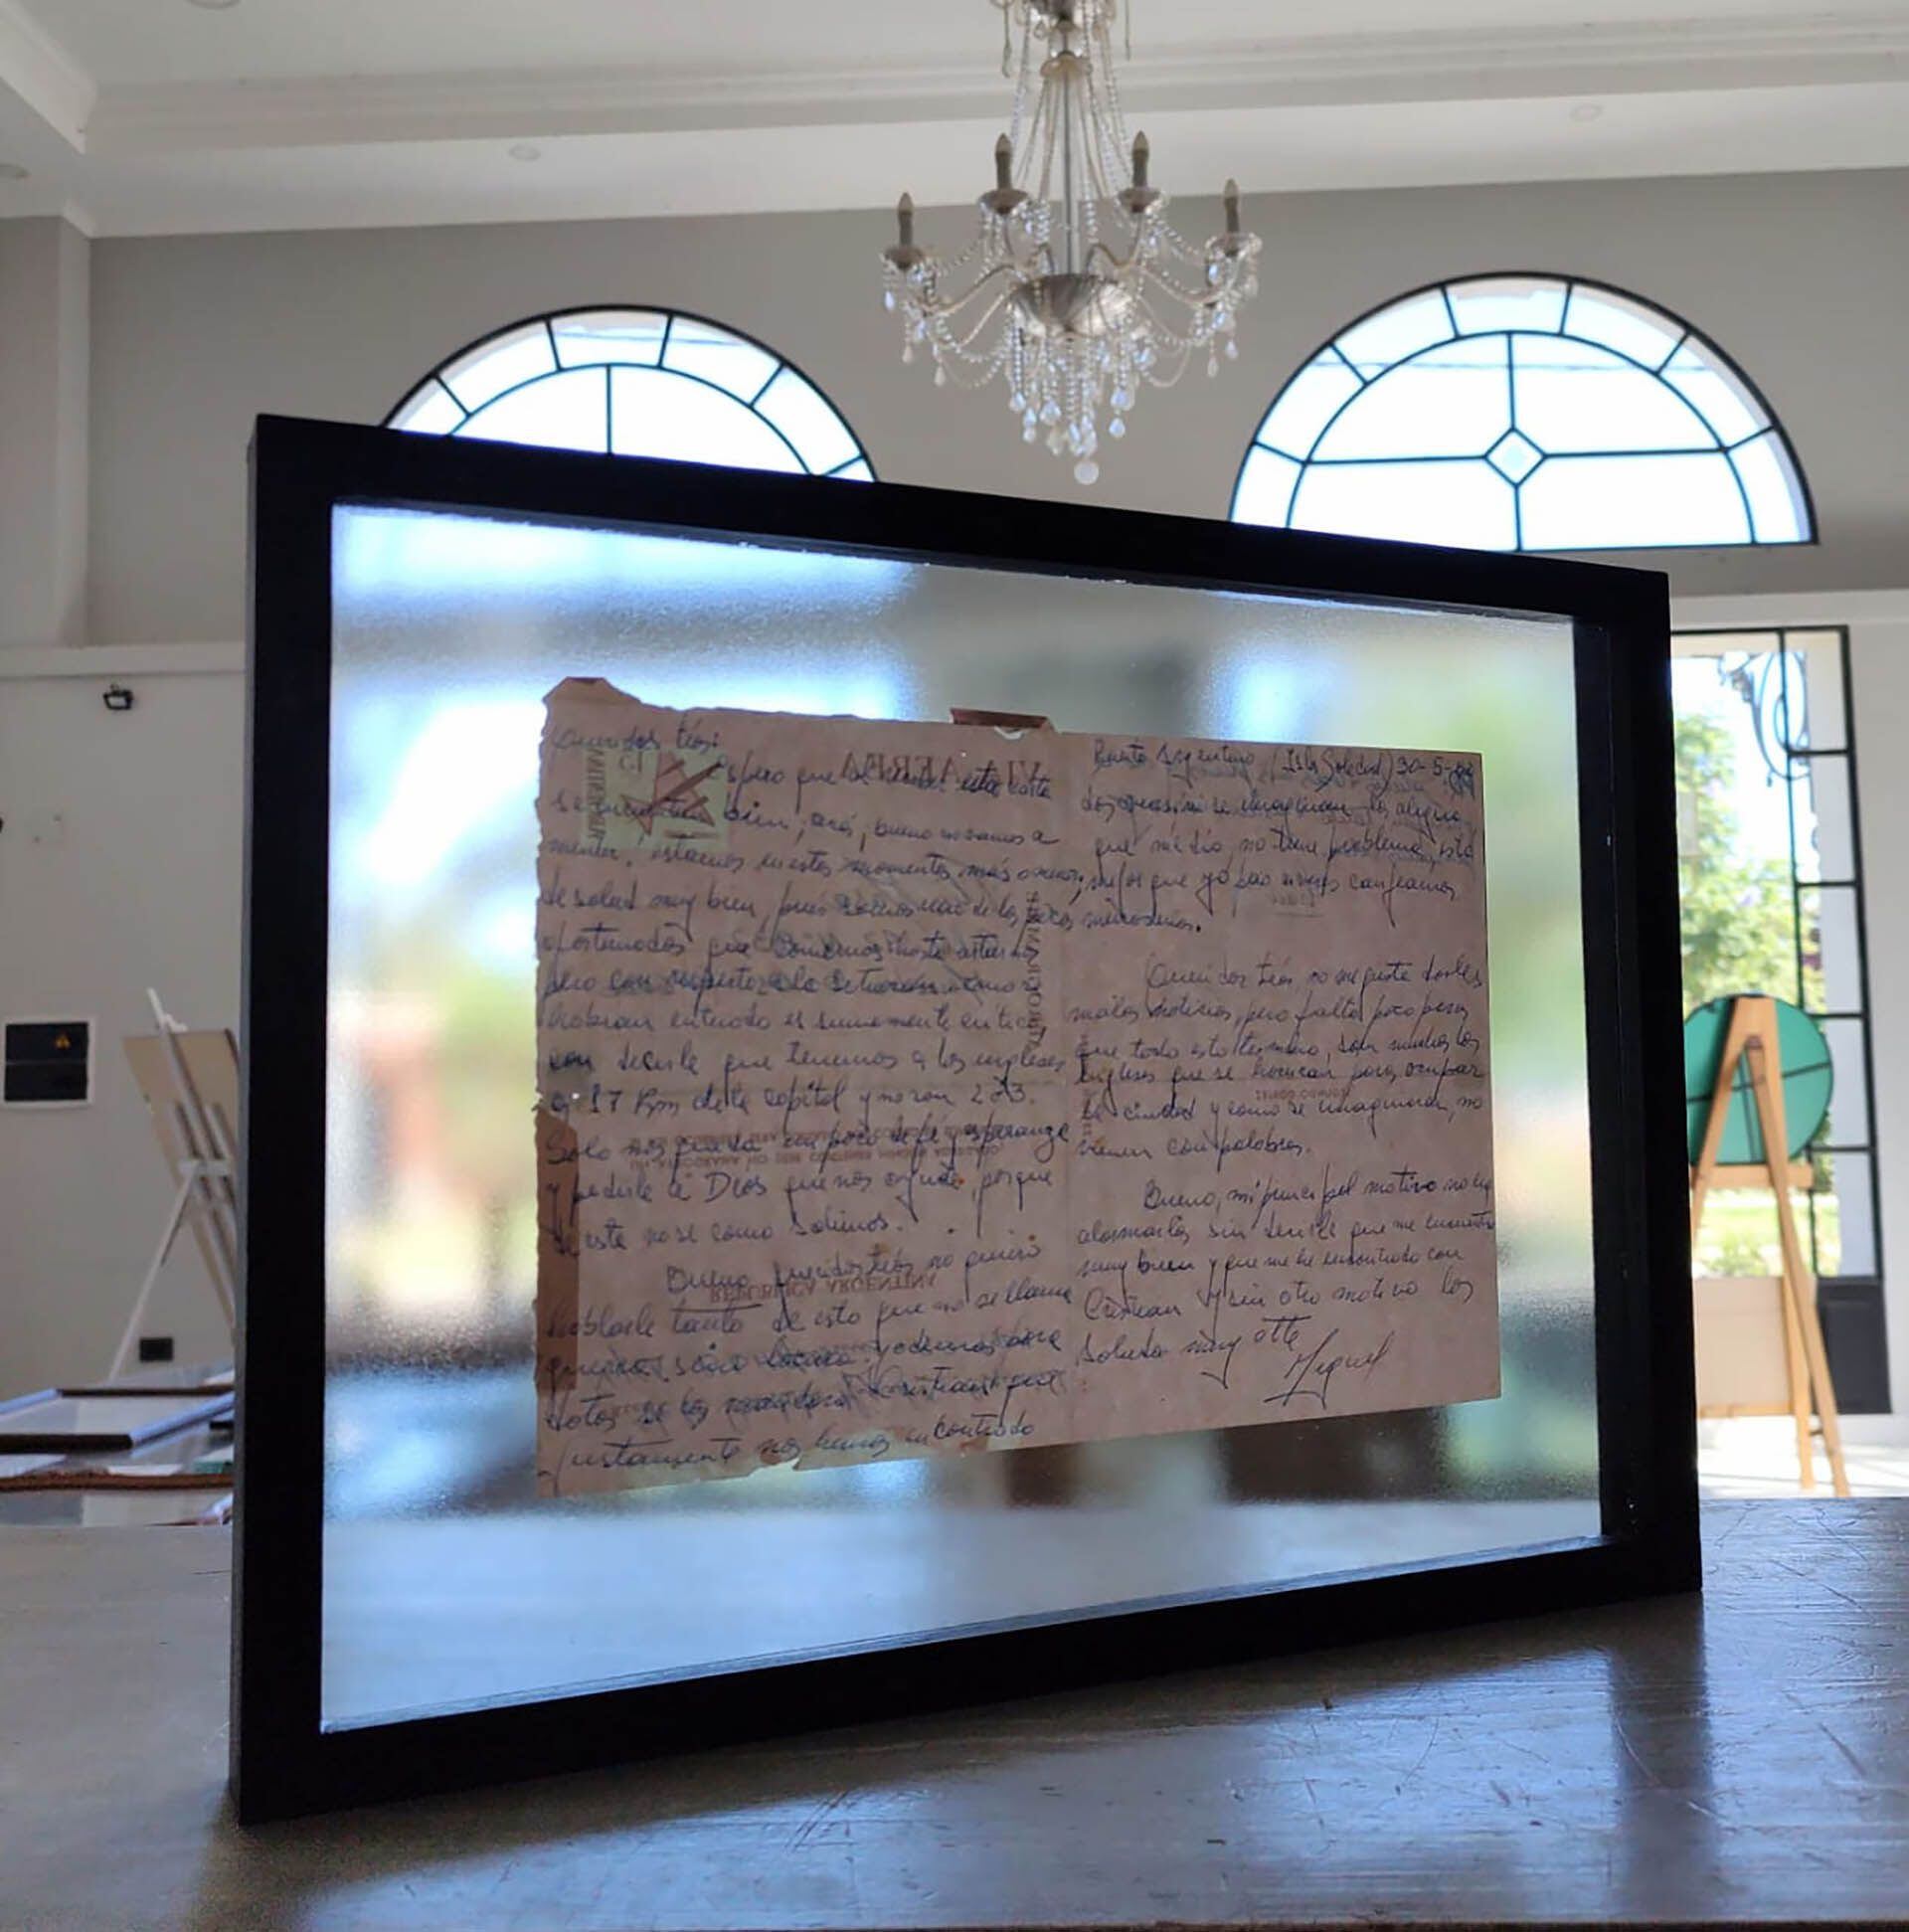 Queridos tíos:
Espero que al recibir esta carta
se encuentren bien, acá, bueno no vamos a
mentir, estamos en estos momentos más o menos,
de salud muy bien, pues somos uno de los pocos
afortunados que comemos hasta
pero con respecto a la situación como
habran entrado es sumamente critica
con decirle que tenemos a los ingleses
a 17 Km de la capital y no son 2 o 3.
Solo nos queda un poco de fé y esperanza
y pedirle a Dios que nos ayude, porque
de este no se como salimos.
Bueno queridos tíos no quiero
hablarle tanto de esto que no se llame
guerra, sino locura. y
fotos se los Cristian que
justamente nos hemos encontrado
Puerto Argentino (Isla Soledad) 30-5-82
dos se imaginan la alegria
que me dió, no tiene problema, está
mejor que yo
Queridos tíos, no me gusta darles
malas noticias, pero falta poco para
que todo esto termine, son muchos los
ingleses que se para ocupar
la ciudad y como se imaginaran, no
vienen con palabras.
Bueno, mi principal motivo no es
alarmarlos sin decirle que me encuentro
muy bien y que me he encontrado con
Cristian y sin otro motivo los
Saluda muy atte
Miguel
VIA AEREA
REPUBLICA ARGENTINA